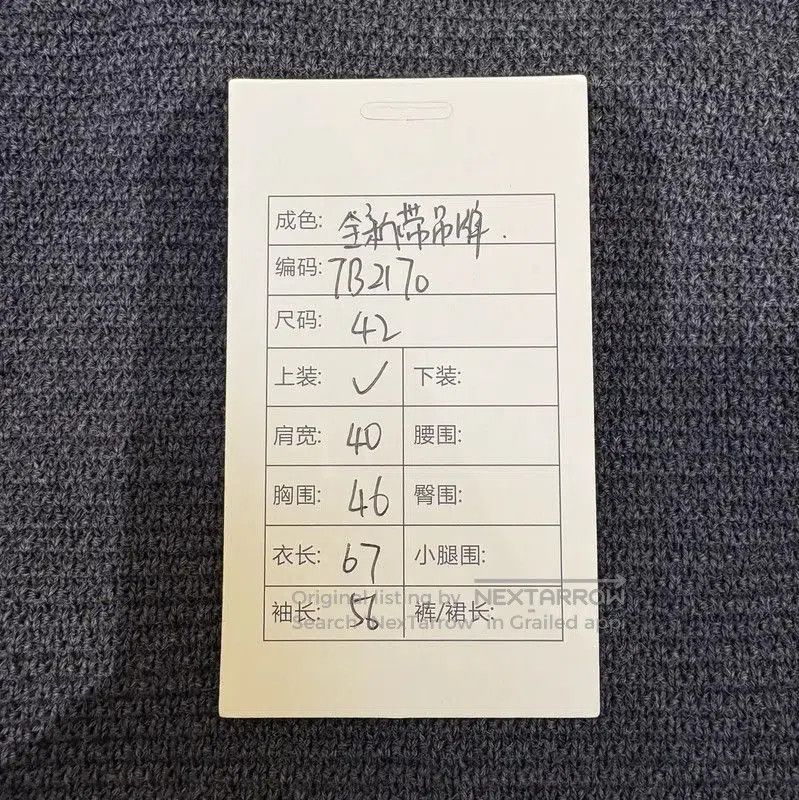 成色: 全新带吊牌.
编码: 7B2170
尺码: 42
上装: ✓ 下装:
肩宽: 40 腰围:
胸围: 46 臀围:
衣长: 67 小腿围:
袖长: 56 裤/裙长:
Original listing by NEXTARROW
Search "NexTarrow" in Grailed app